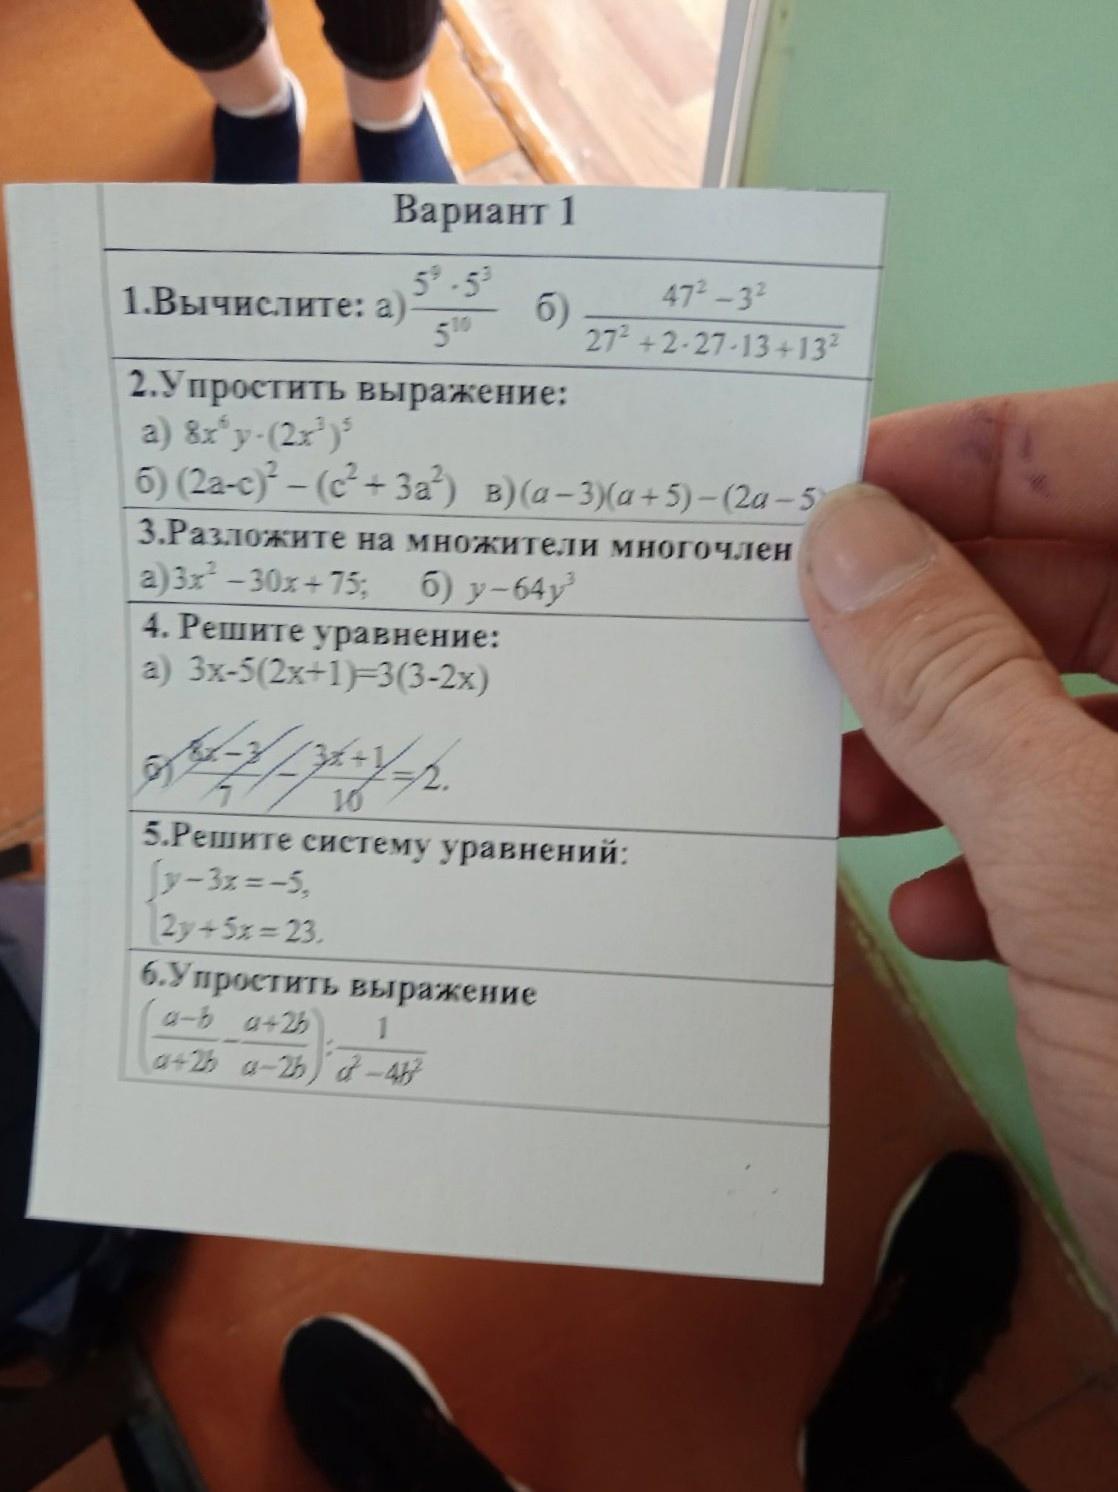 Вариант 1
1.Вычислите: а) (5⁹ · 5³)/5¹⁰ б) (47² – 3²)/(27² + 2·27·13 + 13²)
2.Упростить выражение:
а) 8x⁶y·(2x³)⁵
б) (2a-c)² – (c² + 3a²) в)(a – 3)(a + 5) – (2a – 5
3.Разложите на множители многочлен
а)3x² – 30x + 75; б) y – 64y³
4. Решите уравнение:
а) 3x-5(2x+1)=3(3-2x)
б) (8x – 3)/7 – (3x + 1)/10 = 2.
5.Решите систему уравнений:
{y – 3x = –5,
2y + 5x = 23.
6.Упростить выражение
((a–b)/(a+2b) – (a+2b)/(a–2b)) : 1/(a² – 4b²)